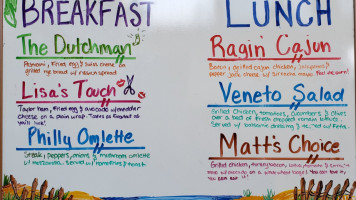 BREAKFAST
The Dutchman
Pastrami, Fried egg, & Swiss cheese
grilled rye bread w/ russian spread
Lisa's Touch
Taylor Ham, Fried egg & avocado w/ cheddar
cheese on a plain wrap
you'll like!
Philly Omlette
Steak, peppers, onions & mushroom omlette
w/ mozzarella, served w/ homefries & toast
LUNCH
Ragin' Cajun
Bacon, grilled cajun chicken, jalapenos &
pepper jack cheese w/ sriracha mayo
Veneto Salad
Grilled Chicken, tomatoes, cucumbers & olives
over a bed of fresh chopped romaine lettuce.
Served w/ balsamic dressing w/
Matt's Choice
Grilled chicken, turkey bacon,
w/ avocado on a whole wheat